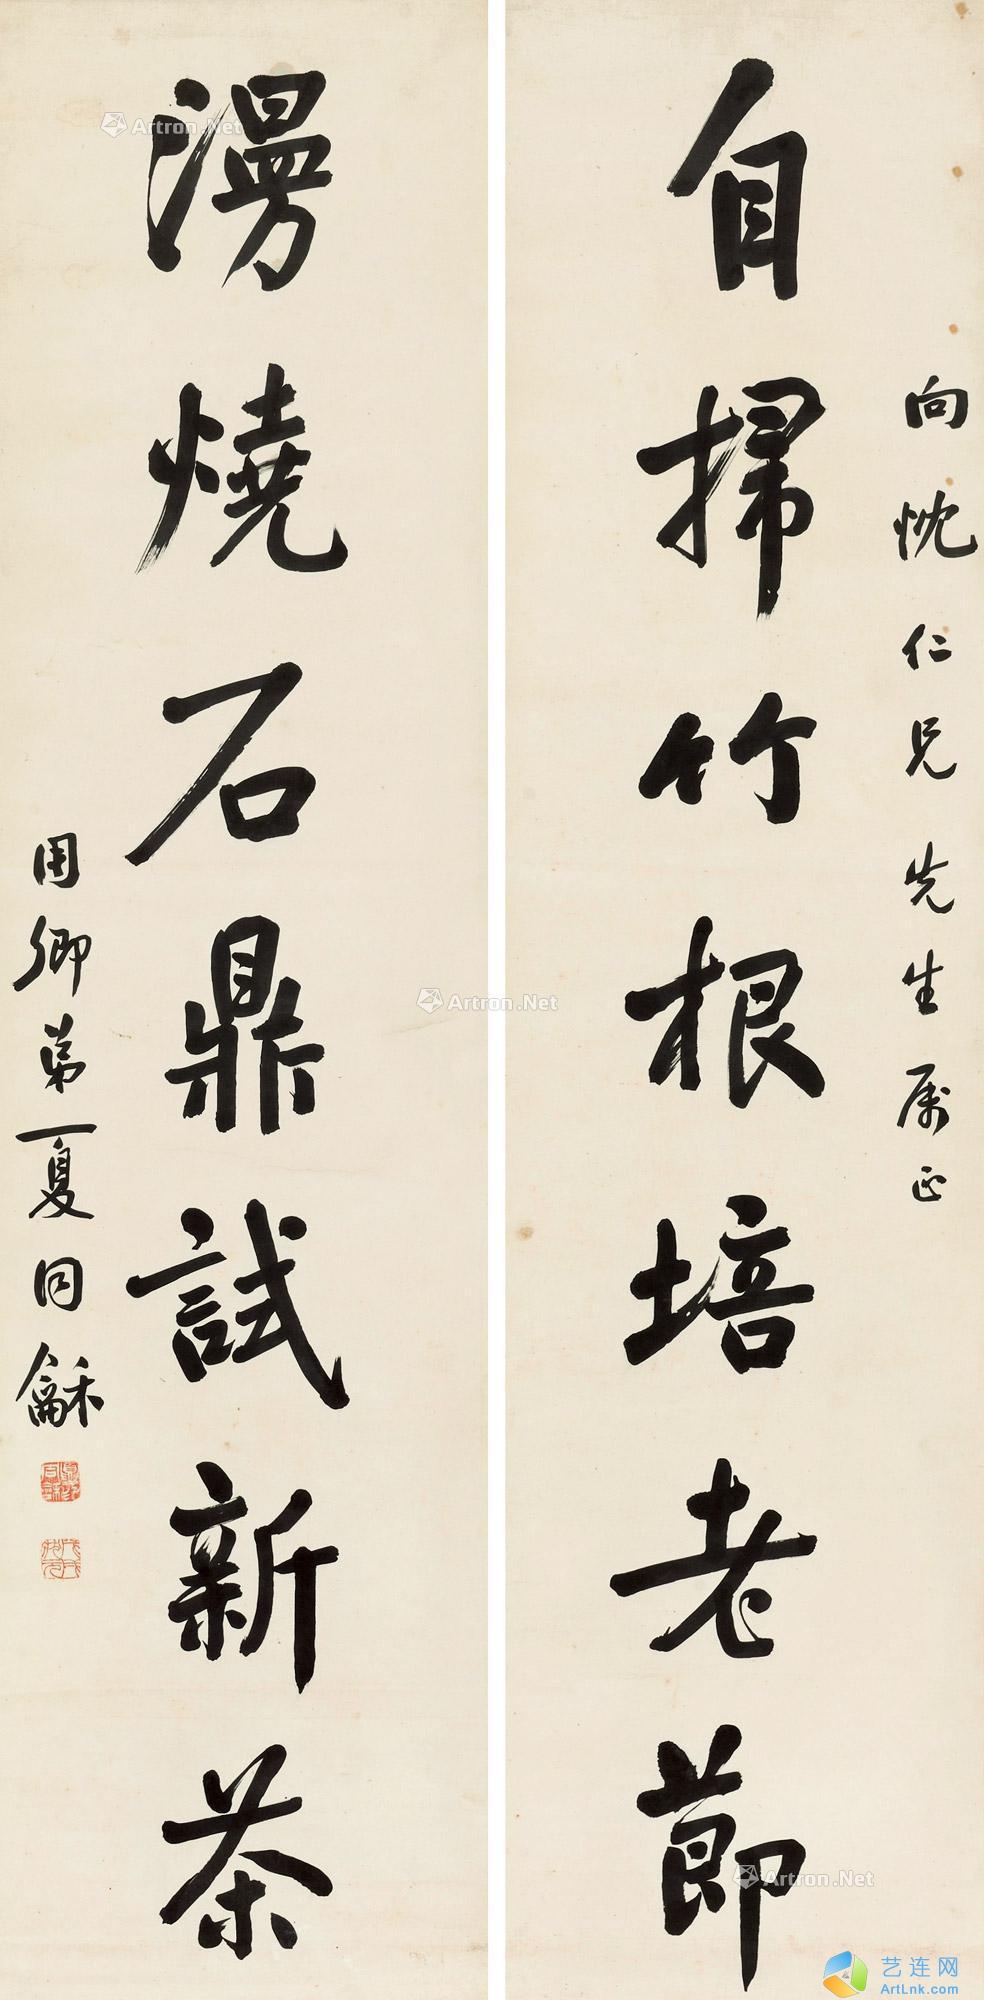 向忱仁兄先生属正
自掃竹根培老節
漫燒石鼎試新茶
用卿弟夏同龢
Artron.Net
Artron.Net
Artron.Net
艺连网
ArtLnk.com